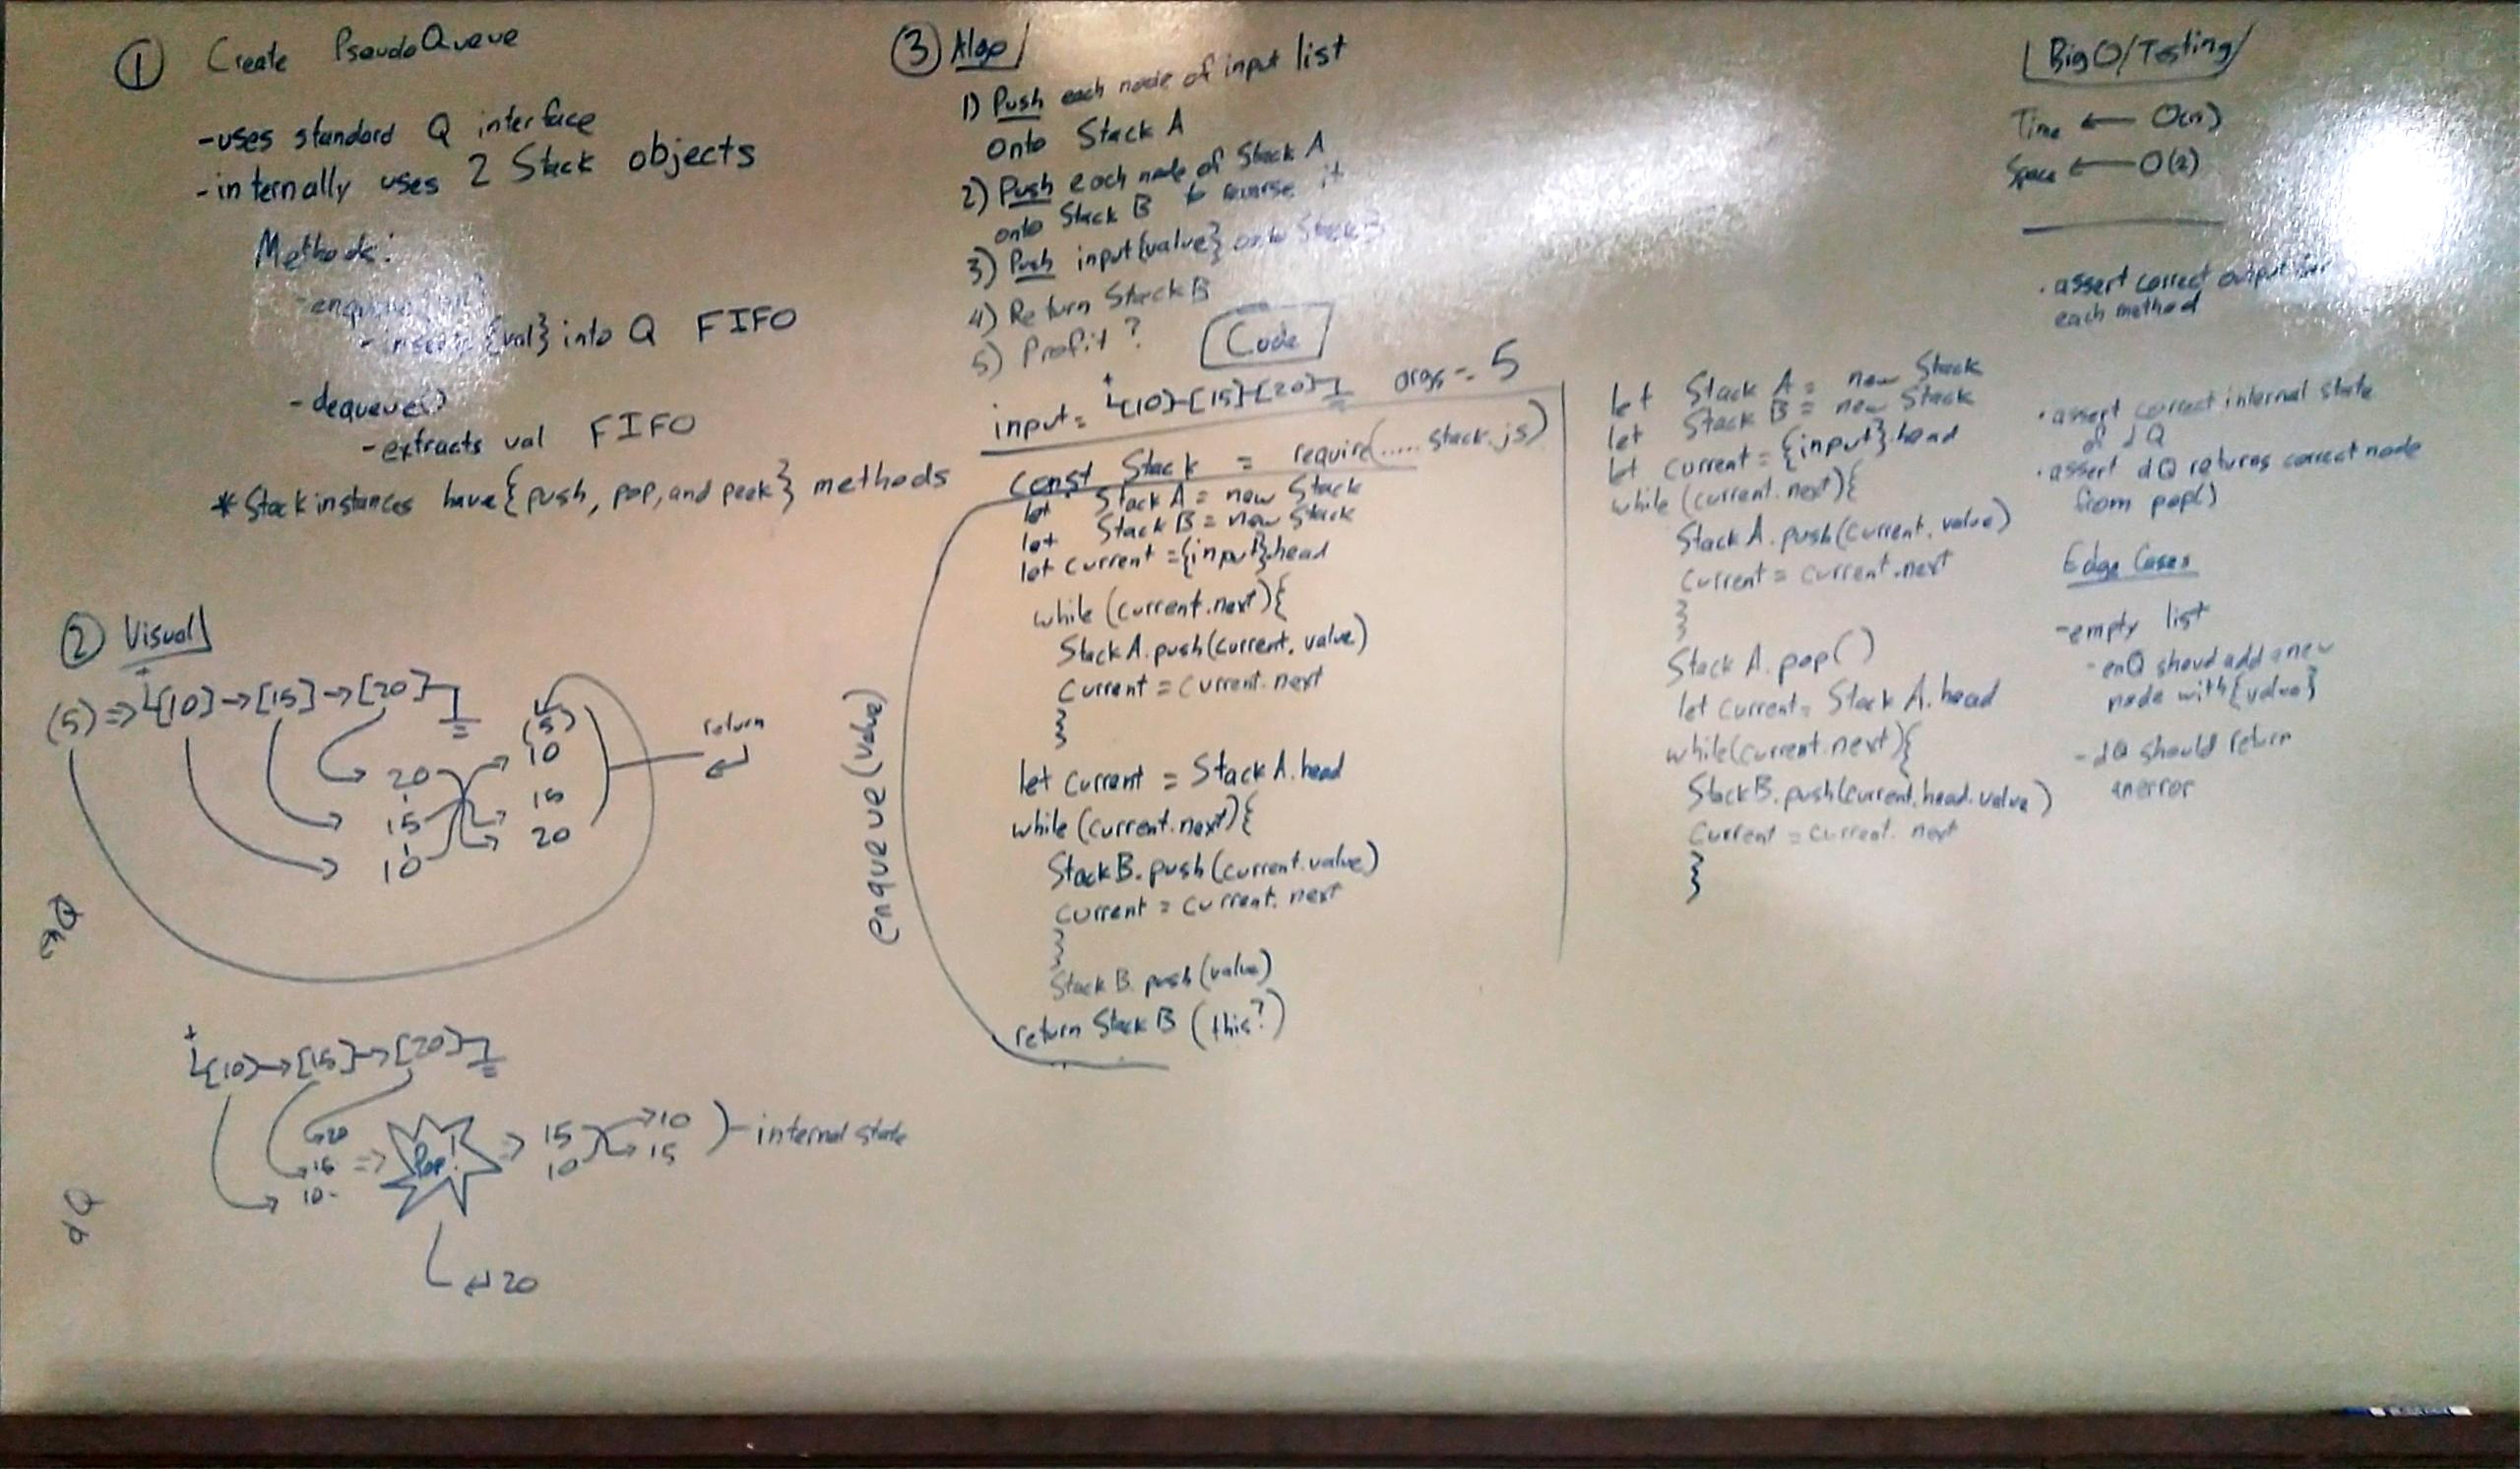 ① Create PseudoQueue
- uses standard Q interface
- internally uses 2 Stack objects
Methods:
{val} into Q FIFO
- dequeue()
- extracts val FIFO
* Stack instances have {push, pop, and peek} methods
② Visual
(5) => [10] -> [15] -> [20]
20
15
10
(5)
10
15
20
return
enQ
[10] -> [15] -> [20]
20
15
10
=> Pop! =>
15
10
10
15
internal state
20
dQ
③ Algo
1) Push each node of input list
onto Stack A
2) Push each node of Stack A
onto Stack B to reverse it
3) Push input{value} onto Stack B
4) Return Stack B
5) Profit?
Code
input = [10]-[15]-[20] args = 5
const Stack = require(..... stack.js)
enqueue(value)
let Stack A = new Stack
let Stack B = new Stack
let current = {input}.head
while (current.next){
Stack A.push(current.value)
current = current.next
}
let current = Stack A.head
while (current.next){
Stack B.push(current.value)
current = current.next
}
Stack B.push(value)
return Stack B (this?)
let Stack A = new Stack
let Stack B = new Stack
let current = {input}.head
while (current.next){
Stack A.push(current.value)
current = current.next
}
Stack A.pop()
let current = Stack A.head
while(current.next){
Stack B.push(current.head.value)
current = current.next
}
Big O/Testing
Time <- O(n)
Space <- O(2)
. assert correct output for
each method
. assert correct internal state
of dQ
. assert dQ returns correct node
from pop()
Edge Cases
- empty list
- enQ shoud add a new
node with {value}
- dQ should return
an error